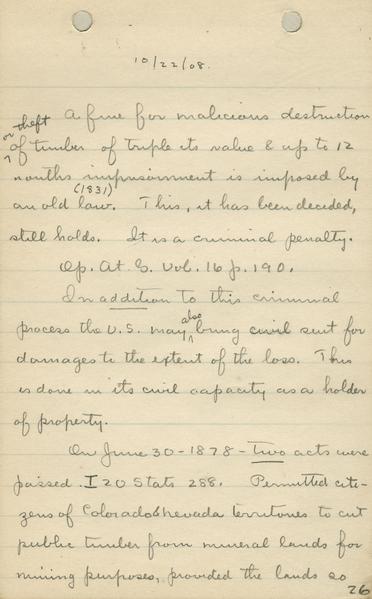 10/22/08.
A fine for malicious destruction
or theft
of timber of triple its value & up to 12
months imprisonment is imposed by
(1831)
an old law. This, it has been decided,
still holds. It is a criminal penalty.
Op. At. G. Vol. 16 p. 190.
In addition to this criminal
also
process the U.S. may bring civil suit for
damages to the extent of the loss. This
is done in its civil capacity as a holder
of property.
On June 30-1878 - Two acts were
passed. I 20 Stats 288. Permitted citi-
zens of Colorado & nevada territories to cut
public timber from mineral lands for
mining purposes, provided the lands so
26